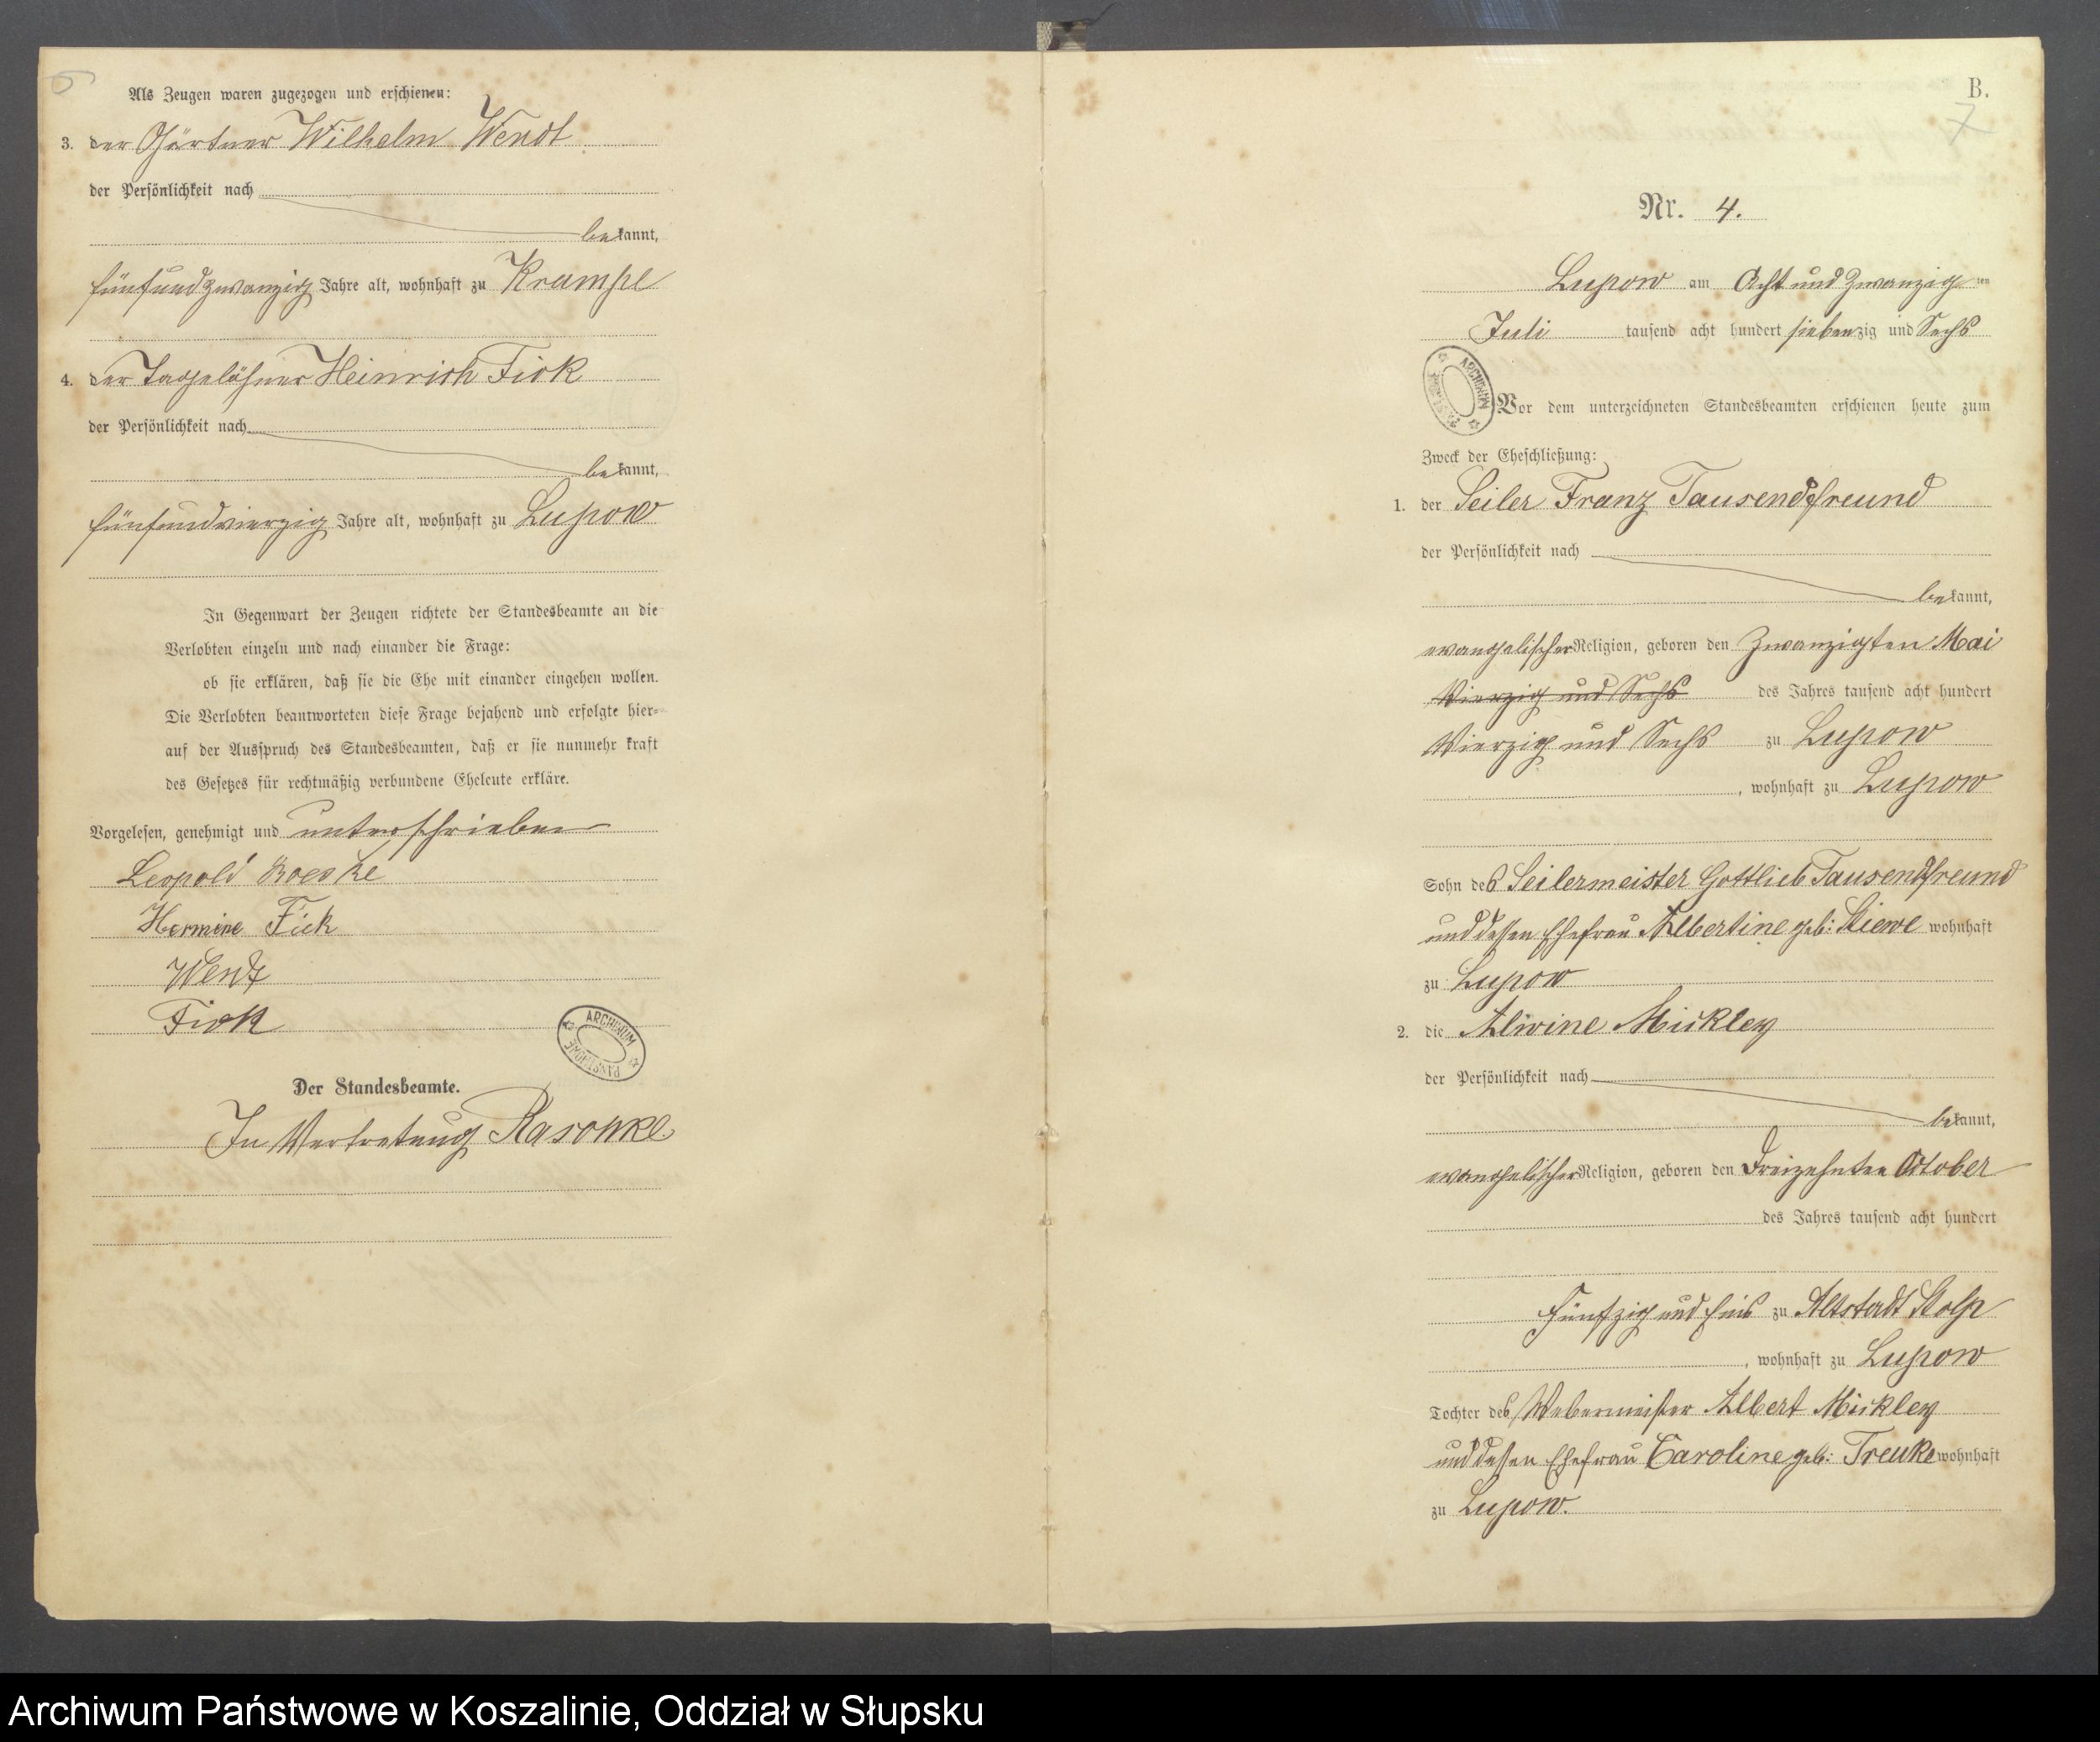 Als Zeugen waren zugezogen und erschienen:
3. der Gärtner Wilhelm Wendt
der Persönlichkeit nach
bekannt,
fünfundzwanzig Jahre alt, wohnhaft zu Krampe
4. der Tagelöhner Heinrich Fick
der Persönlichkeit nach
bekannt,
fünfundvierzig Jahre alt, wohnhaft zu Lupow
In Gegenwart der Zeugen richtete der Standesbeamte an die
Verlobten einzeln und nach einander die Frage:
ob sie erklären, daß sie die Ehe mit einander eingehen wollen.
Die Verlobten beantworteten diese Frage bejahend und erfolgte hier-
auf der Ausspruch des Standesbeamten, daß er sie nunmehr kraft
des Gesetzes für rechtmäßig verbundene Eheleute erkläre.
Vorgelesen, genehmigt und unterschrieben
Leopold
Hermine Fick
Wendt
Fick
ARCHIWUM PAŃSTWOWE
Der Standesbeamte.
In Vertretung Raschke
B.
7
Nr. 4.
Lupow am Acht und Zwanzigsten
Juli tausend acht hundert siebenzig und Sechs
ARCHIWUM PAŃSTWOWE
Vor dem unterzeichneten Standesbeamten erschienen heute zum
Zweck der Eheschließung:
1. der Seiler Franz Tausendfreund
der Persönlichkeit nach
bekannt,
evangelischer Religion, geboren den Zwanzigten Mai
Vierzig und Sechs des Jahres tausend acht hundert
Vierzig und Sechs zu Lupow
, wohnhaft zu Lupow
Sohn des Seilermeister Gottlieb Tausendfreund
und dessen Ehefrau Albertine geb: Stiewe wohnhaft
zu Lupow
2. die Alwine Mickley
der Persönlichkeit nach
bekannt,
evangelischer Religion, geboren den Dreizehnten October
des Jahres tausend acht hundert
Fünfzig und Eins zu Altstadt Stolp
, wohnhaft zu Lupow
Tochter des Webermeister Albert Mickley
und dessen Ehefrau Caroline geb: wohnhaft
zu Lupow.
Archiwum Państwowe w Koszalinie, Oddział w Słupsku